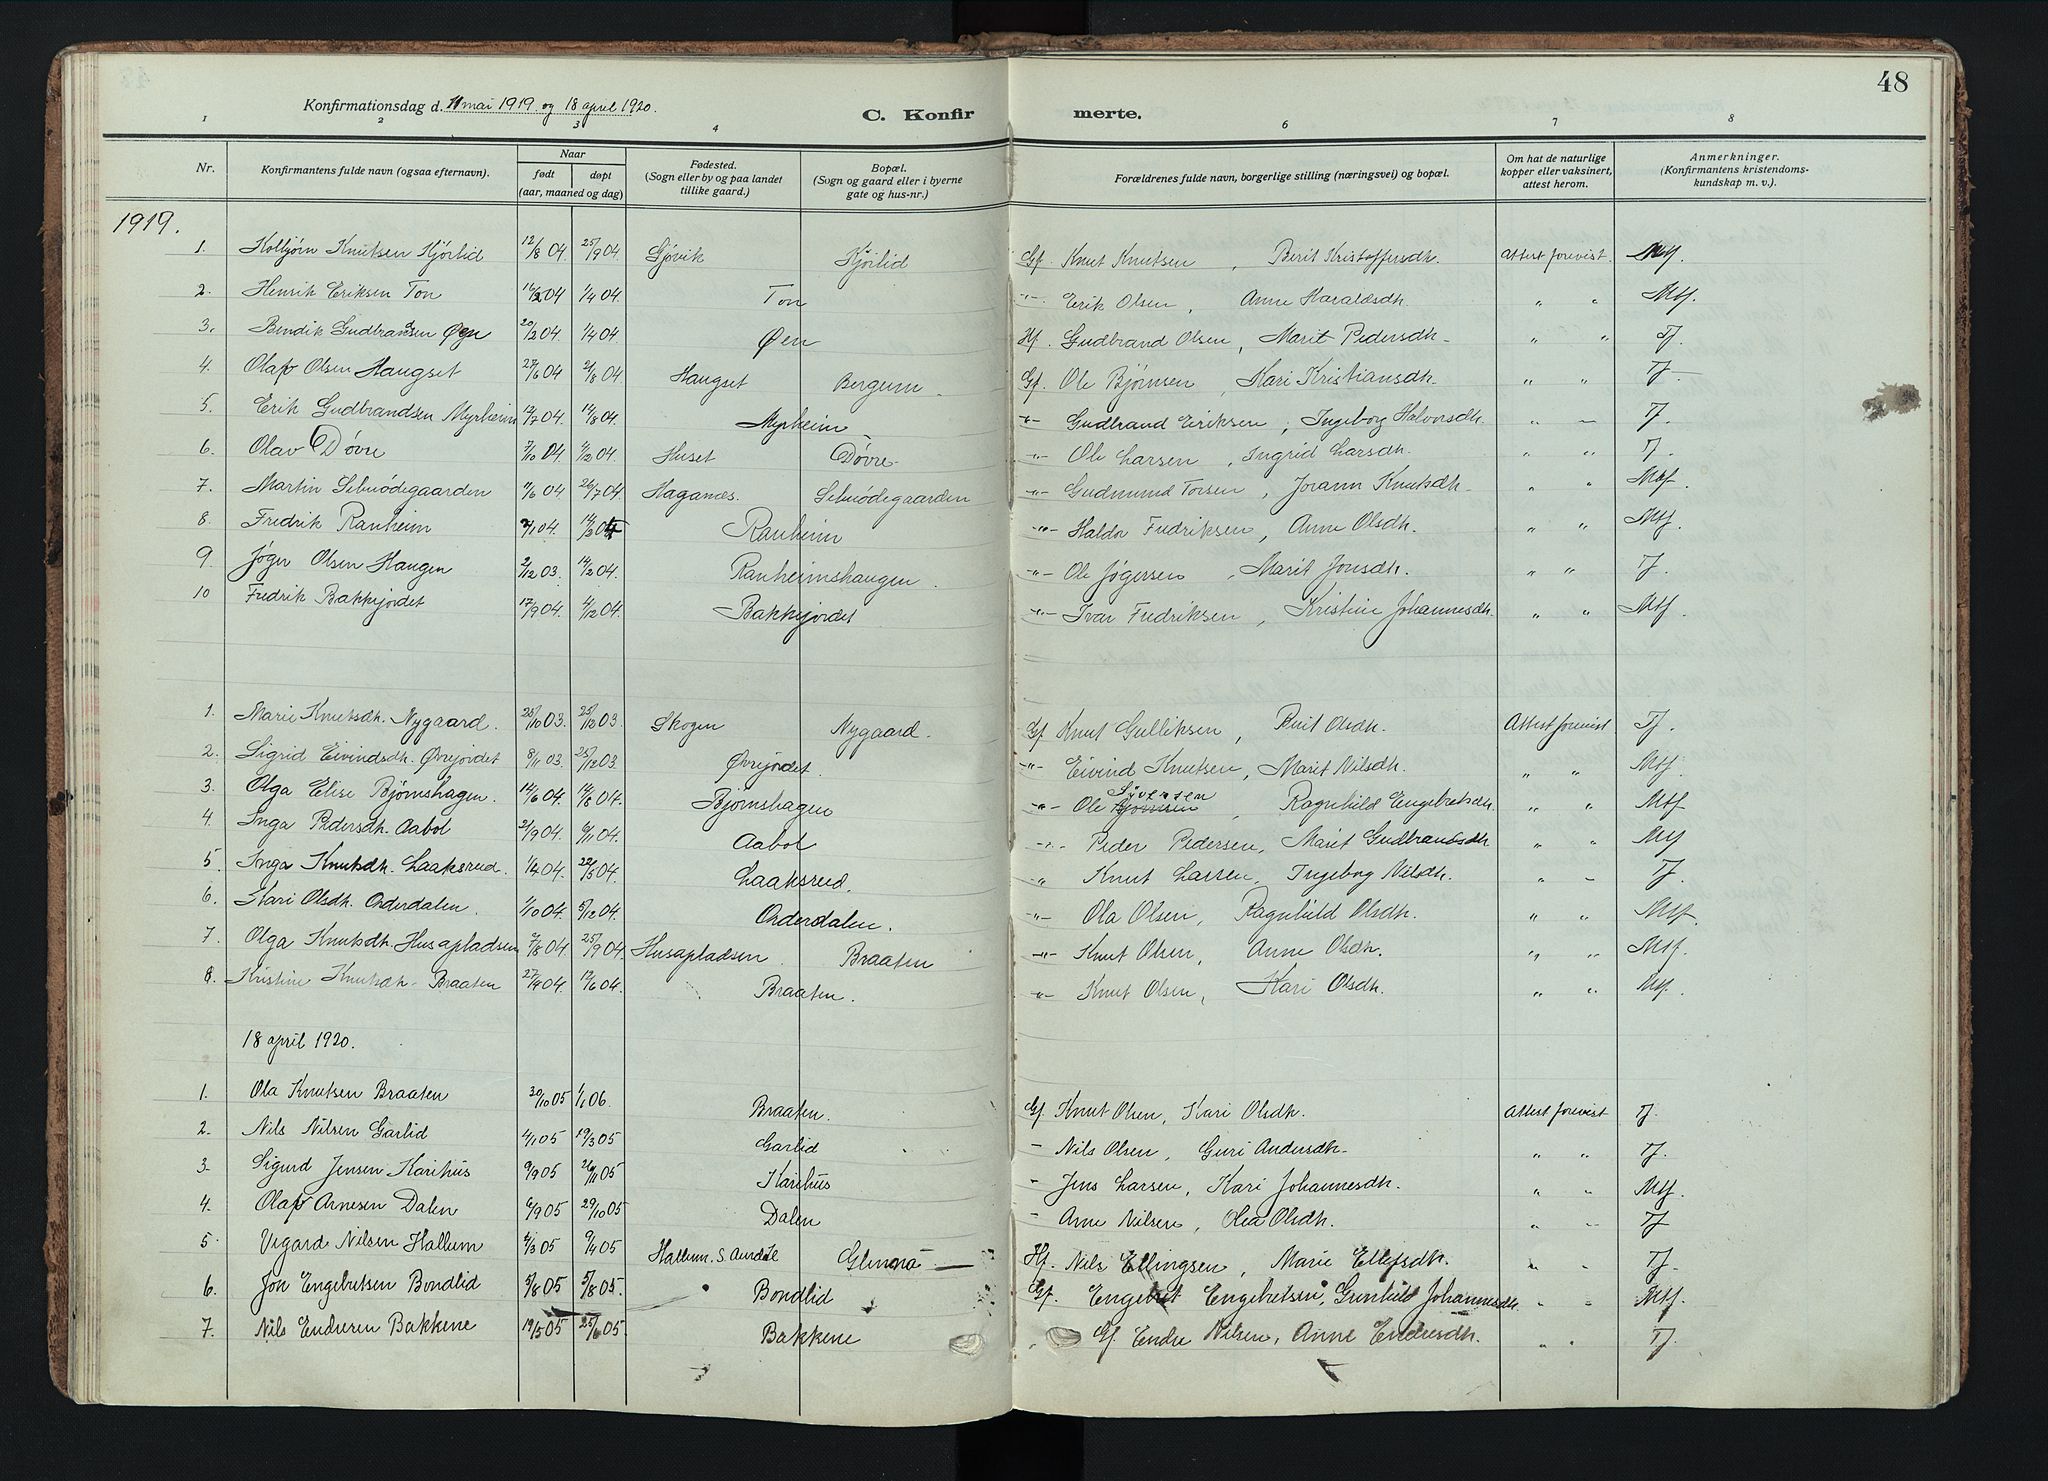 48
Konfirmationsdag d. 11 mai 1919 og 18 april 1920.
C. Konfirmerte.
1 2 3 4 6 7 8
Nr. Konfirmantens fulde navn (ogsaa efternavn). Naar født døpt (aar, maaned og dag) Fødested. (Sogn eller by og paa landet tillike gaard.) Bopæl. (Sogn og gaard eller i byerne gate og hus-nr.) Forældrenes fulde navn, borgerlige stilling (næringsvei) og bopæl. Om hat de naturlige kopper eller vaksinert, attest herom. Anmerkninger. (Konfirmantens kristendomskundskap m. v.).
1919.
1. Kolbjørn Knutsen Kjørlid 12/8 04 25/9 04. Gjøvik Kjørlid Gf. Knut Knutsen, Berit Kristoffersdh. Attest forevist. Mtf.
2. Henrik Eriksen Ton 16/2 04 1/4 04. Ton -"- Erik Olsen, Anne Haraldsdh. " " Mtf.
3. Bendik Gudbrandsen Øen 20/2 04 1/4 04. Øen Hf. Gudbrand Olsen, Marit Pedersdh. " " Tf.
4. Olaf Olsen Haugset 27/6 04 21/8 04 Haugset Bergum Gf. Ole Bjørnsen, Kari Kristiansdh. " " Tf.
5. Erik Gudbrandsen Myrheim 12/7 04 14/8 04. Myrheim -"- Gudbrand Eriksen, Ingeborg Halvorsdh. " - Tf.
6. Olav Døvre 7/10 04 4/12 04. Huset Døvre -"- Ole Larsen, Ingrid Larsdh. " " Tf.
7. Martin Sebuødegaarden 11/6 04 26/7 04. Haganæs. Sebuødegaarden -"- Gudmund Torsen, Jorann Knutsdh. " " Mtf.
8. Fredrik Ranheim 2/1 04. 14/2 04 Ranheim -"- Haldor Fredriksen, Anne Olsdh. " " Mtf.
9. Jøger Olsen Haugen 2/12 03. 14/2 04. Ranheimshaugen. -"- Ole Jøgersen, Marit Jonsdh. " " Tf.
10 Fredrik Bakkejordet 17/9 04. 4/12 04. Bakkejordet -"- Ivar Fredriksen, Kristine Johannesdh. " " Mtf.
1. Marie Knutsdh. Nygaard. 25/10 03. 25/12 03. Skogen Nygaard. Gf Knut Gulliksen, Berit Olsdh. Attest forevist Tf.
2. Sigrid Eivindsdh. Øvrejordet 8/11 03. 25/12 03. Øvrejordet. -"- Eivind Knutsen, Marit Nilsdh. " " Mtf.
3. Olga Elise Bjørnshagen. 14/6 04. 14/8 04. Bjørnshagen -"- Ole Syversen, Ragnhild Engebretsdh. " " Mtf
4. Inga Pedersdh. Aabol 21/9 04. 6/11 04. Aabol -"- Peder Pedersen, Marit Gudbrandsdh. " " Mtf
5. Inga Knutsdh. Laaksrud. 1/4 04. 22/5 04. Laaksrud. " Knut Larsen, Ingeborg Nilsdh. " - Tf.
6. Kari Olsdh. Onderdalen. 1/10 04. 5/12 04. Onderdalen. -"- Ola Olsen, Ragnhild Olsdh. " " Mtf.
7. Olga Knutsdh. Husapladsen 9/8 04. 25/9 04. Husapladsen Braaten -"- Knut Olsen, Anne Olsdh. " " Mtf.
8. Kristine Knutsdh. Braaten 27/4 04. 12/6 04. Braaten. -"- Knut Olsen, Kari Olsdh. " " Mtf.
18 april 1920.
1. Ola Knutsen Braaten 30/10 05 1/1 06. Braaten. Gf. Knut Olsen, Kari Olsdh. Attest forevist Tf.
2. Nils Nilsen Garlid 4/1 05 19/3 05 Garlid - Nils Olsen, Guri Andersdh. " " Tf.
3. Sigurd Jensen Karihus 9/9 05 26/11 05 Karihus - Jens Larsen, Kari Johannesdh. " - Mtf.
4. Olaf Arnesen Dalen 6/9 05 29/10 05 Dalen - Arne Nilsen, Olea Olsdh. " - Tf
5. Vegard Nilsen Hallum 4/3 05 9/4 05 Hallum. S. Aurdal Glenna Hf. Nils Ellingsen, Marie Ellefsdh. " - Tf.
6. Jon Engebretsen Bondlid 5/8 05 5/8 05. Bondlid Gf. Engebret Engebretsen, Gunhild Johannesdh " - Mtf.
7. Nils Endresen Bakkene 19/5 05 25/6 05. Bakkene Gf. Endre Nilsen, Anne Endresdh. " " Tf.